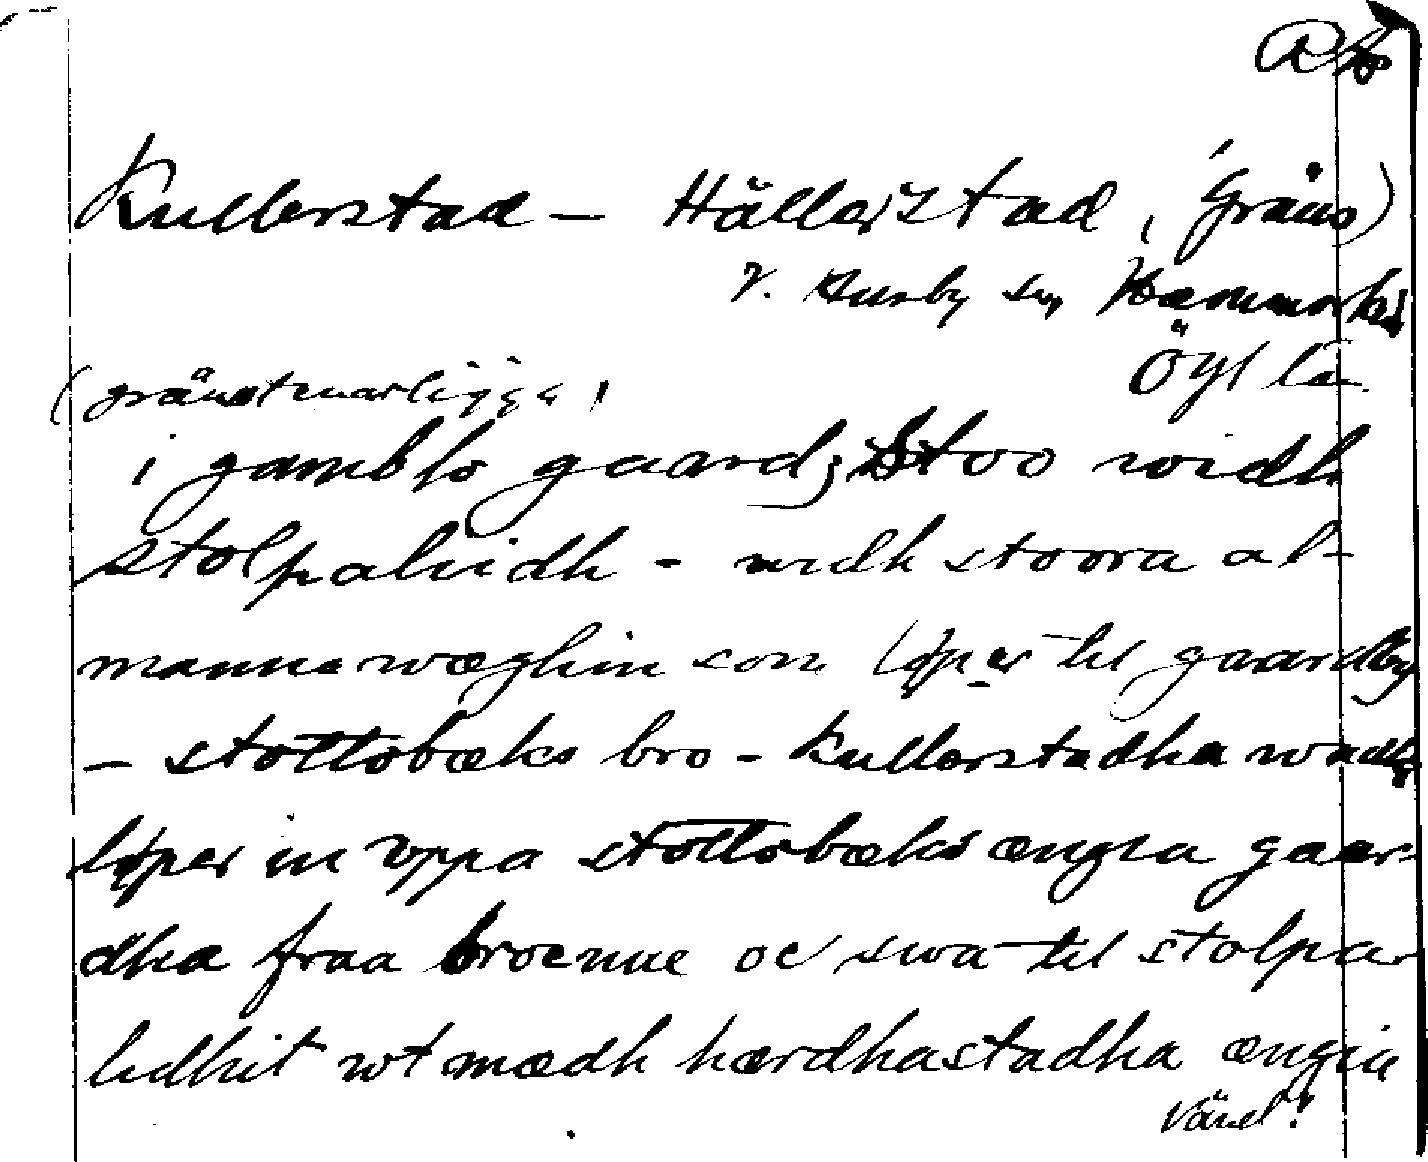 Kullerstad – Hällerstad (gräns)
V. Husby sn Hammarkd
Ögl län
(gränstenarligga)
i gamblo gaardz stoo widh
stolpalidh - widh stoora al-
manna wæghin som løper til gaardby
– stottobæks bro - Kullerstadha wadh
løper in vppa stottobæks ængia gaar-
dha fraa broenne oc swa til stolpa-
lidhit wt mædh hærdhastadha ængia
Vänd!